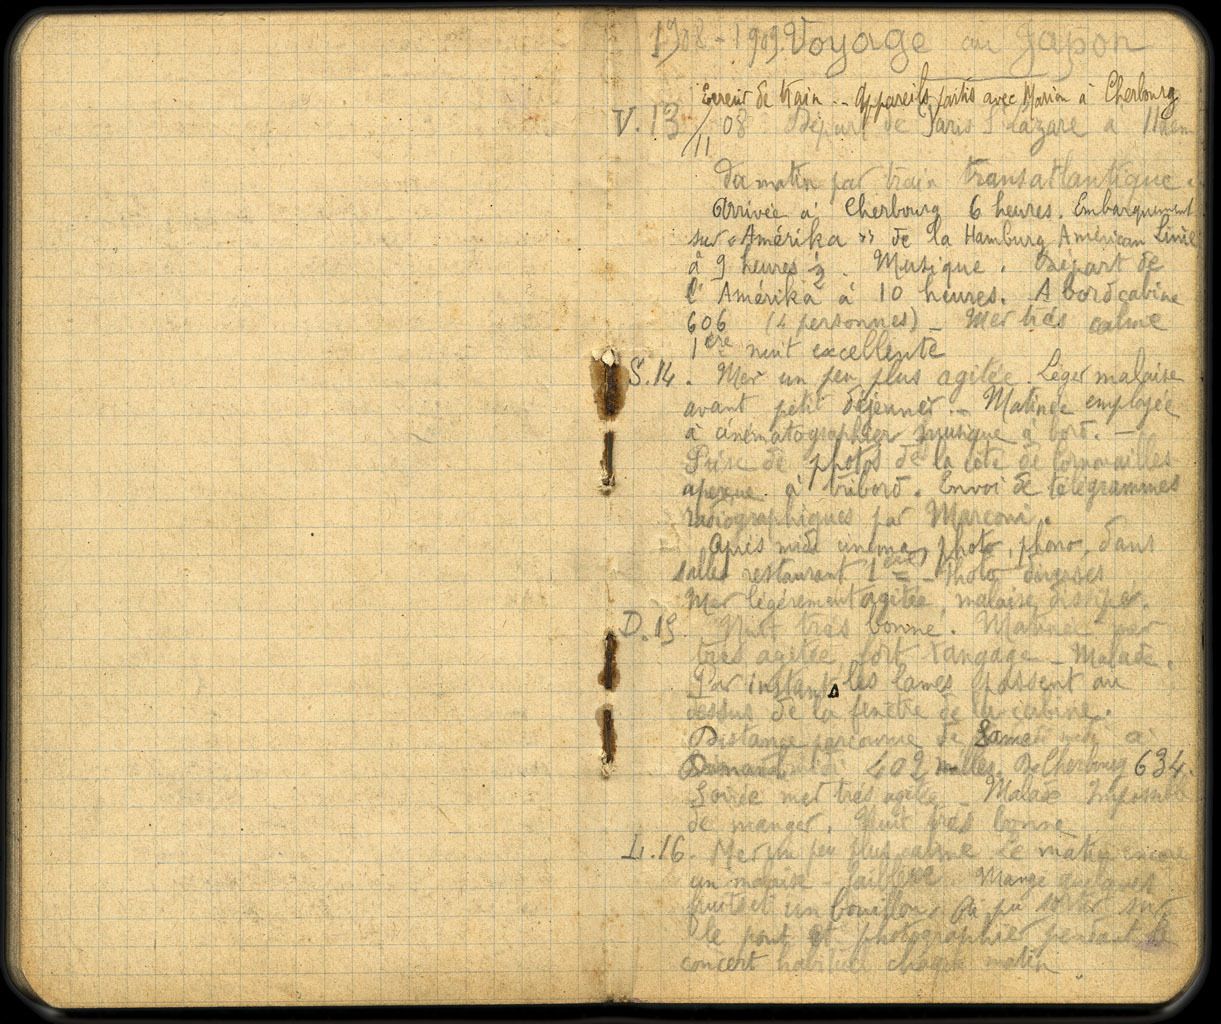 1908-1909. Voyage au Japon
Erreur de train -- Appareils partis avec Marion à Cherbourg
V. 13/11 08 Départ de Paris St Lazare à 11h
du matin par train transatlantique.
Arrivée à Cherbourg 6 heures. Embarquement
sur « Amérika » de la Hamburg Américan Linie
à 9 heures ½. Musique. Départ de
l'Amérika à 10 heures. A bord cabine
606 (4 personnes) _ Mer très calme
1ère nuit excellente
S. 14. Mer un peu plus agitée. Léger malaise
avant petit déjeuner. _ Matinée employée
à cinématographier musique à bord. _
Prise de photos de la côte de Cornouailles
aperçue à tribord. Envoi de télégrammes
radiographiques par Marconi.
Après midi cinéma, photo, phono, dans
salle restaurant 1ère _ Photo diverses
Mer légérement agitée, malaise dissiper.
D. 15. Nuit très bonne. Matinée mer
très agitée, fort tangage _ Malade.
Par instant, les lames passent au
dessus de la fenêtre de la cabine.
Distance parcourue de Samedi midi à
Dimanche midi 402 milles. De Cherbourg 634.
Soirée mer très agitée _ Malade Impossible
de manger. Nuit très bonne
L. 16. Mer un peu plus calme Le matin encore
un malaise _ faiblesse. Mange quelques
fruits et un bouillon. Ai pu sortir sur
le pont et photographier pendant le
concert habituel chaque matin